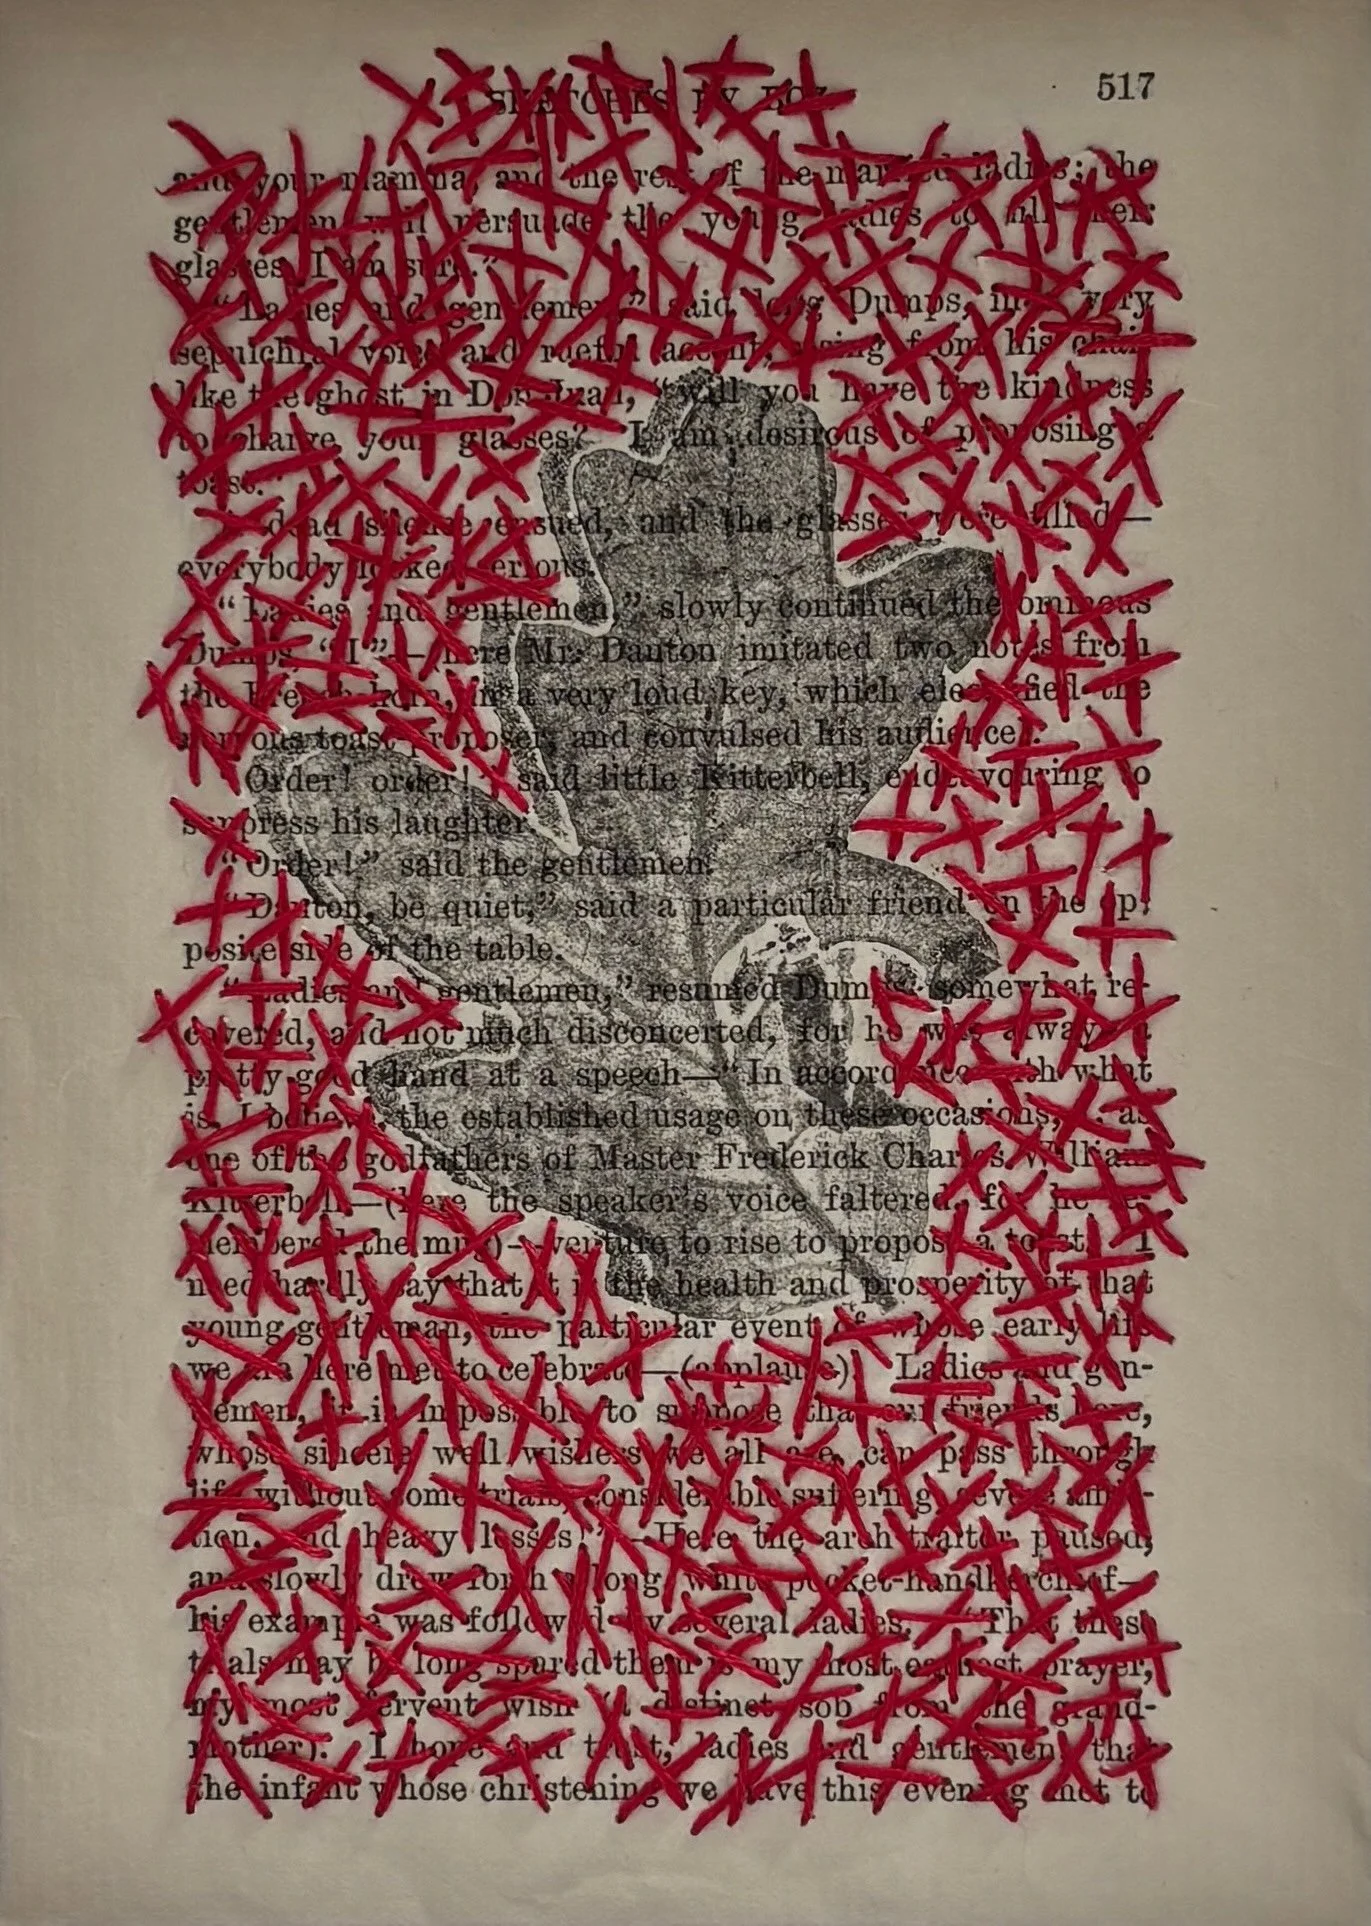 517
SKETCHES BY BOZ
and your mamma, and the rest of the married ladies; the
gentlemen will persuade the young ladies to fill their
glasses, I am sure."
"Ladies and gentlemen," said long Dumps, in a very
sepulchral voice and rueful accent, rising from his chair
like the ghost in Don Juan, "will you have the kindness
to charge your glasses? I am desirous of proposing a
toast."
A dead silence ensued, and the glasses were filled—
everybody looked serious.
"Ladies and gentlemen," slowly continued the ominous
Dumps, "I"—here Mr. Danton imitated two notes from
the French horn, in a very loud key, which electrified the
nervous toast-proposer, and convulsed his audience.
"Order! order!" said little Kitterbell, endeavouring to
suppress his laughter.
"Order!" said the gentlemen.
"Danton, be quiet," said a particular friend on the op-
posite side of the table.
"Ladies and gentlemen," resumed Dumps, somewhat re-
covered, and not much disconcerted, for he was always a
pretty good hand at a speech—"In accordance with what
is, I believe, the established usage on these occasions, I, as
one of the godfathers of Master Frederick Charles William
Kitterbell—(here the speaker's voice faltered, for he re-
membered the mug)—venture to rise to propose a toast. I
need hardly say that it is the health and prosperity of that
young gentleman, the particular event of whose early life
we are here met to celebrate—(applause). Ladies and gen-
tlemen, it is impossible to suppose that our friends here,
whose sincere well-wishers we all are, can pass through
life without some trials, considerable suffering, severe afflic-
tion, and heavy losses!"—Here the arch-traitor paused,
and slowly drew forth a long, white pocket-handkerchief—
his example was followed by several ladies. "That these
trials may be long spared them is my most earnest prayer,
my most fervent wish (a distinct sob from the grand-
mother). I hope and trust, ladies and gentlemen, that
the infant whose christening we have this evening met to